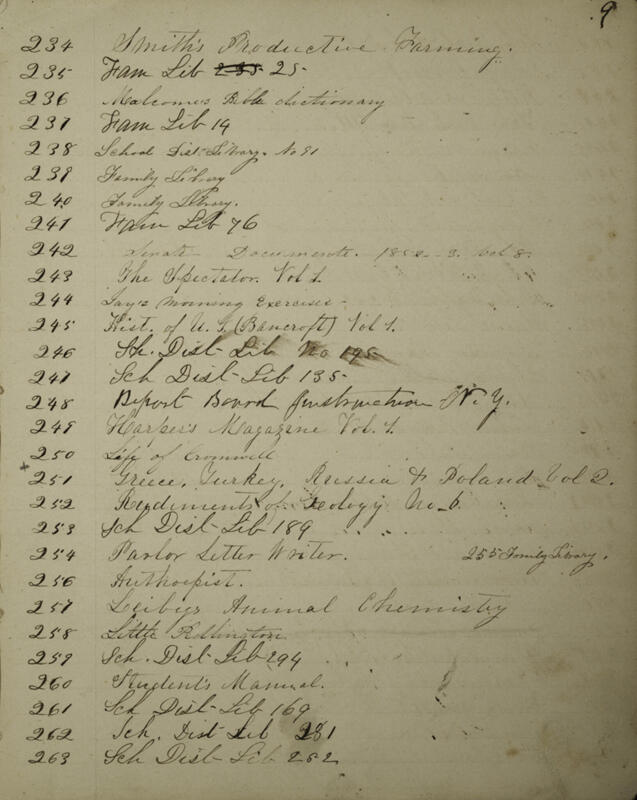 9
234 Smith's Productive Farming.
235 Fam Lib 235 25
236 Malcome's Bible dictionary
237 Fam Lib 14
238 School Dist-Library. No 91
239 Family Library
240 Family Library.
241 Fam Lib 76
242 Senate Documents. 1852-3. Vol 8.
243 The Spectator. Vol 1.
244 Jay's Morning Exercises-
245 Hist. of U.S. (Bancroft) Vol 1.
246 Sch. Dist Lib No 195
247 Sch Dist Lib 135-
248 Report Board Instruction N.Y.
249 Harper's Magazine Vol. 1.
250 Life of Cromwell
+ 251 Greece, Turkey, Russia & Poland Vol 2.
252 Rudiments of Geology No. 6.
253 Sch Dist Lib 189
254 Parlor Letter Writer. 255 Family Library.
256 Authoepist.
257 Leibigs Animal Chemistry
258 Little
259 Sch. Dist Lib 294
260 Student's Manual.
261 Sch Dist Lib 169
262 Sch. Dist Lib 281
263 Sch Dist Lib 282